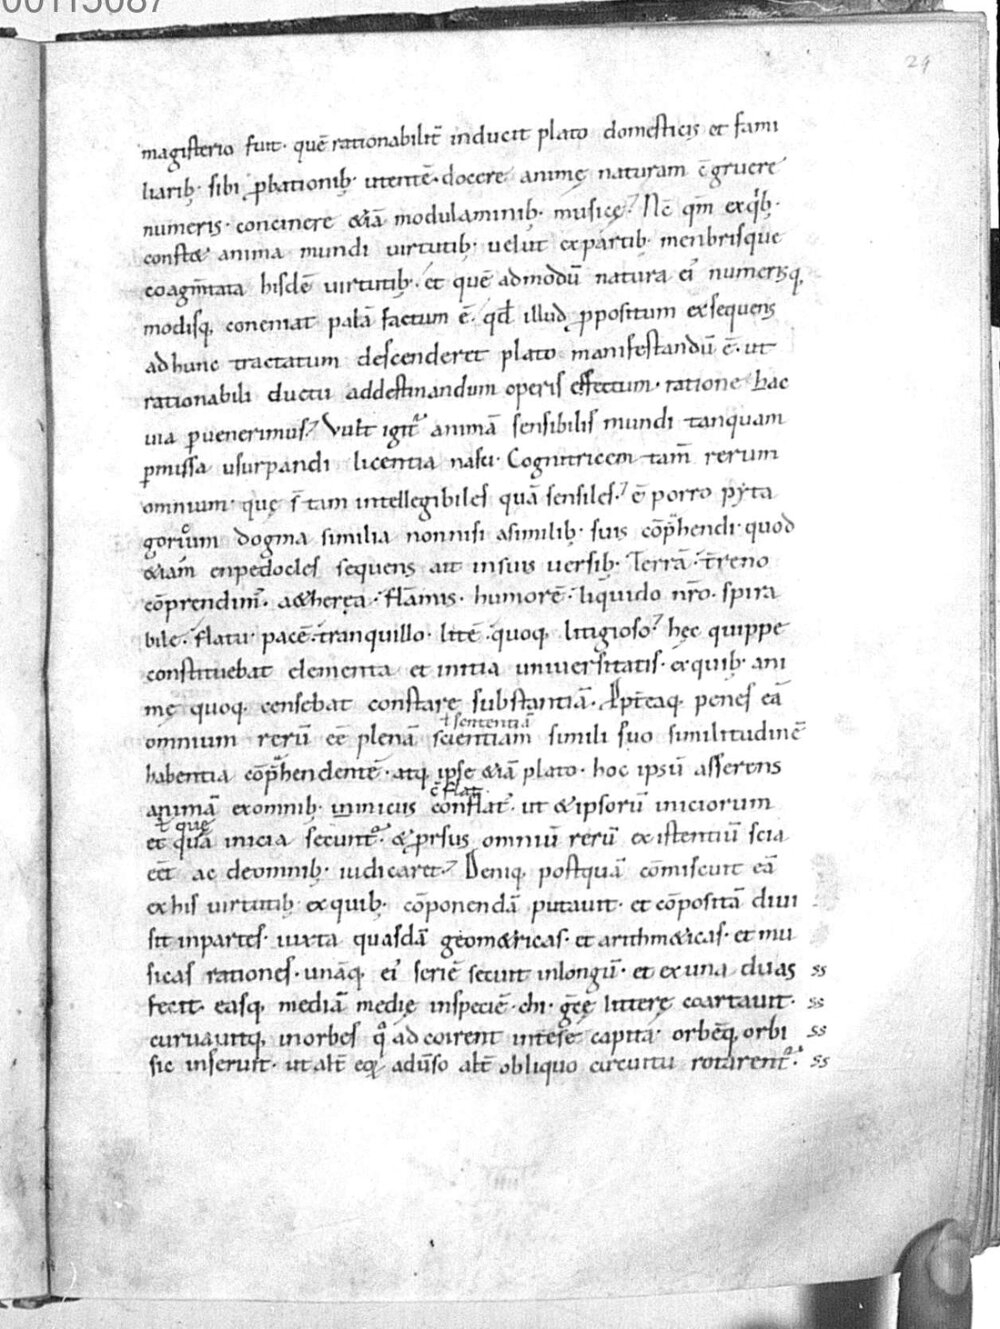 00115087
24
magisterio fuit· quē rationabilit̄ inducit plato domesticis et fami
liarib· sibi ꝓbationib· utentē· docere animę naturam c̄gruere
numeris· concinere &iā modulaminib· musicę? Nc̄ qm̄ ex qͥb·
const& anima mundi uirtutib· uelut ex partib· menbrisque
coagm̄tata hisdē uirtutib· et quē admodū natura ei᾽ numerisq,
modisq, concinat palā factum ē· qđ illud ꝓpositum exsequens
ad hunc tractatum descenderet plato manifestandū ē· ut
rationabili ductu ad destinandum operis effectum· ratione hac
uia ꝑuenerimus? Vult igit᷑ animā sensibilis mundi tanquam
ꝑmissa usurpandi licentia nasci· Cognitricem tam̄ rerum
omnium· quę s̄ tam intellegibiles quā sensiles? ē porro pẏta
goricum dogma similia nonnisi a similib· suis cōp̄hendi· quod
&iam enpedocles sequens ait in suis uersib· Terrā· t̄reno
cōprendim᾽· a&herea· flāmis· humorē· liquido nr̄o· spira
bile· flatu· pacē· tranquillo· litē· quoq, litigioso? hęc quippe
constituebat elementa et initia uniuersitatis· ex quib· ani
mę quoq, censebat constare substantiā· Apt̄eaq, penes eā
ł sententiā
omnium rerū eē plenā scientiam simili suo similitudinē
habentia cōp̄hendente· atq, ipse &iā plato· hoc ipsū asserens
c̄flat
animā ex omnib· inimicus conflat᷑· ut &ipsorū iniciorum
ł quę
et quā inicia secunt᷑· &ꝓrsus omniū rerū existentiū scia
eēt ac de omnib· iudicaret? Deniq, postquā cōmiscuit eā
ex his uirtutib· ex quib· cōponendā putauit· et cōpositā diui
sit in partes· iuxta quasdā geom&ricas· et arithm&icas· et mu
sicas rationes· unāq, ei᾽ seriē secuit in longū· et ex una duas ss
fecit· easq, mediā medię in speciē· chi· gr̄ęę litterę coartauit· ss
curuauitq, in orbes qͣ ad coirent int̄ se capita· orbēq, orbi ss
sic inseruit· ut alt̄ eq, aduso alt̄ obliquo circuitu rotarent᷑· ss